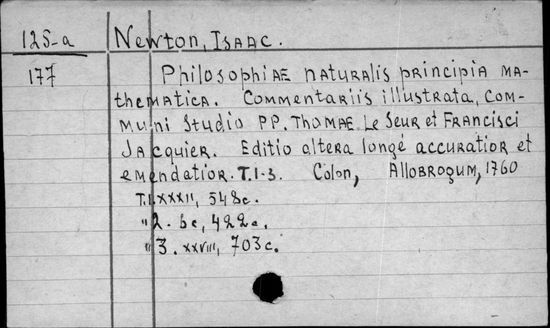 125-a Newton, Isaac.
177 Philosophiae naturalis principia ma-
thematica. Commentariis illustrata, com-
muni studio PP. Thomae Le Seur et Francisci
Jacquier. Editio altera longé accuratior et
emendatior. T. 1-3. Colon, Allobrogum, 1760
T. I. XXXII, 548c.
" 2. 6c, 422c.
" 3. XXVIII, 703c.